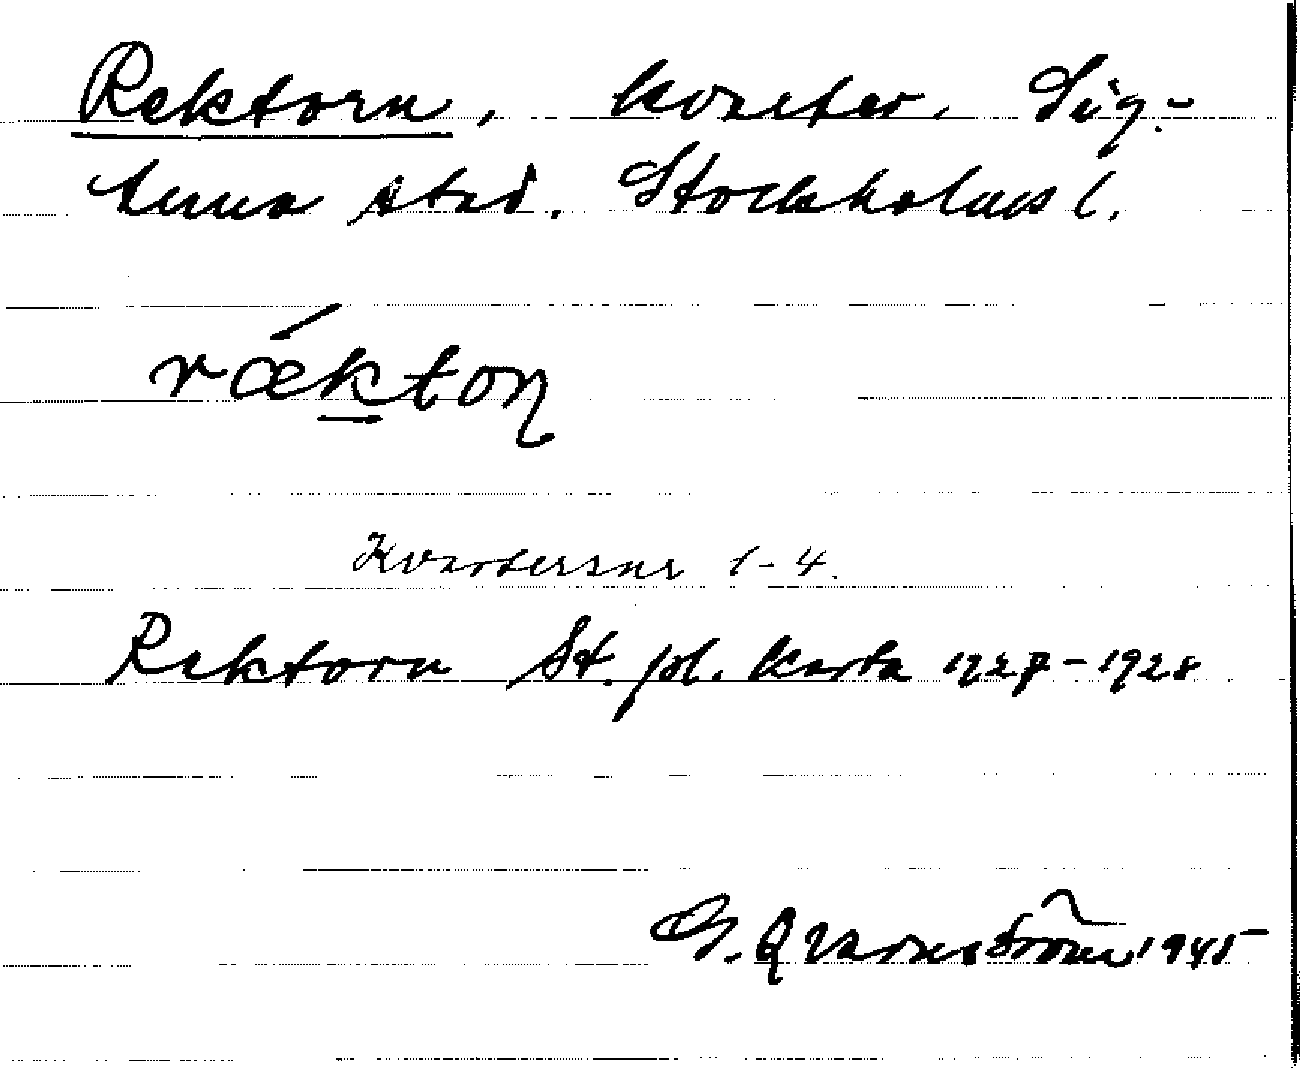 Rektorn, kvarter, Sig-
tuna stad. Stockholms l.
ræ´ktoɳ
Kvartersnr 1-4.
Rektorn St. pl. karta 1927-1928
G. Qvarnström 1945